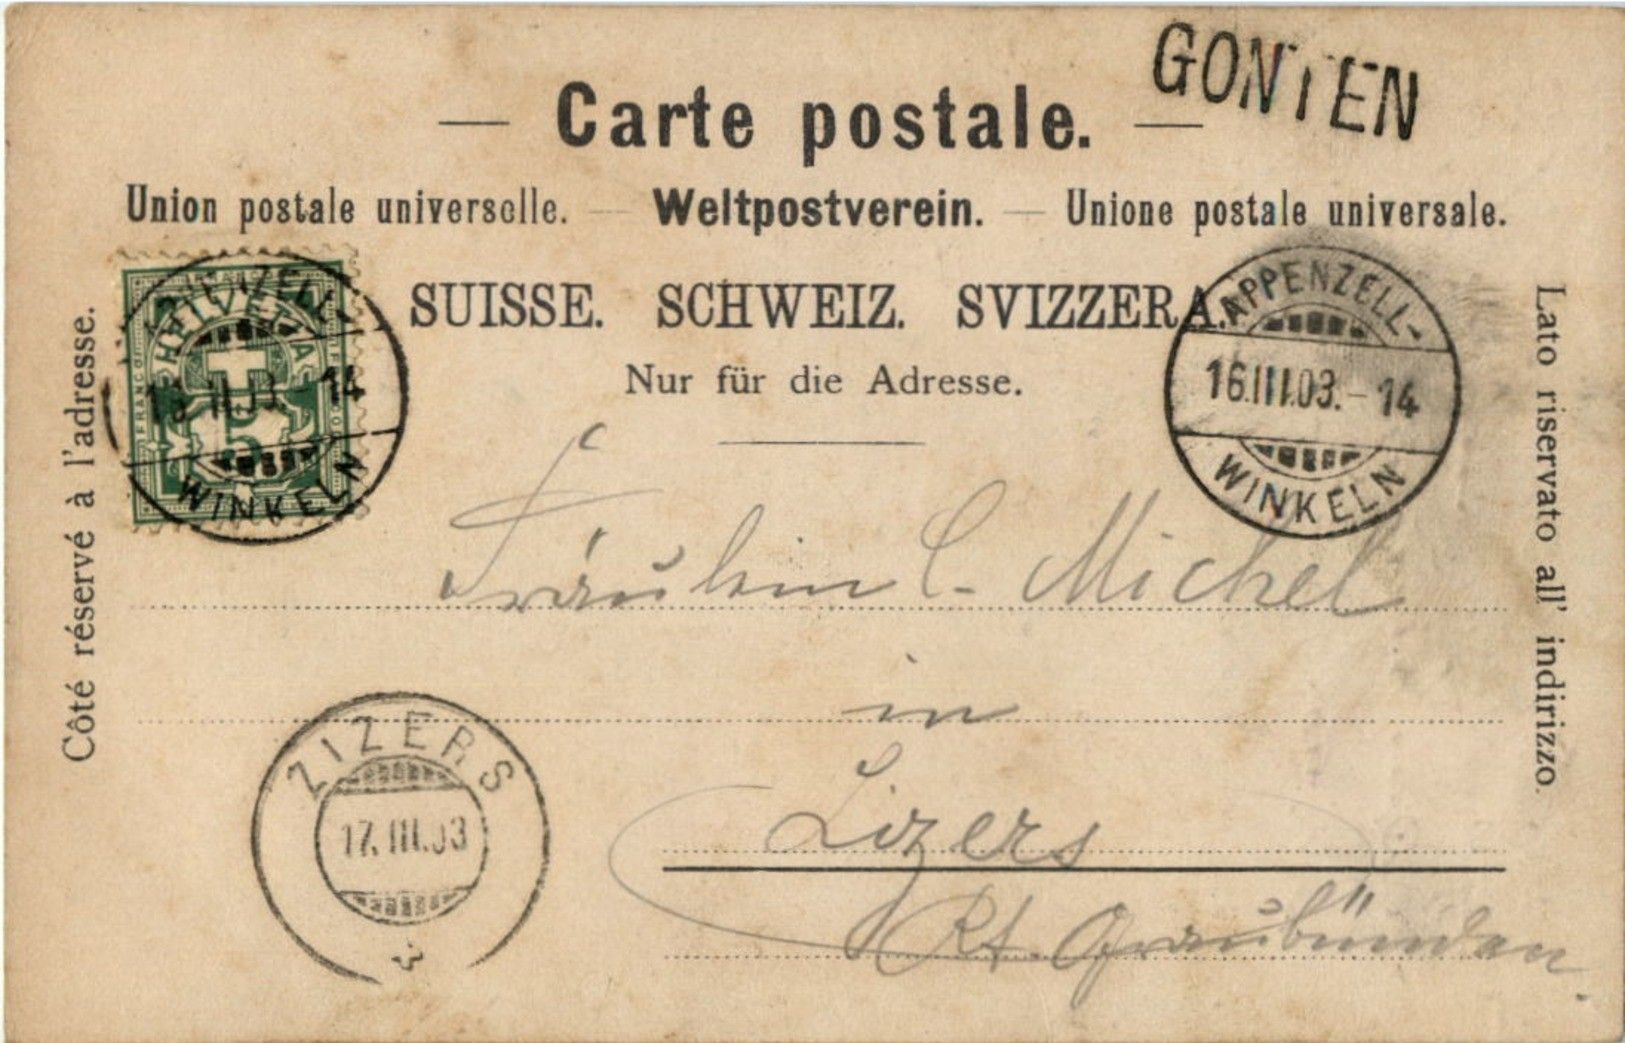 GONTEN
— Carte postale. —
Union postale universelle. — Weltpostverein. — Unione postale universale.
SUISSE. SCHWEIZ. SVIZZERA.
Nur für die Adresse.
Côté réservé à l'adresse.
Lato riservato all' indirizzo.
HELVETIA
FRANCO
5
WINKELN
14
APPENZELL-
16.III.03.-14
WINKELN
Fräulein C. Michel
in
Zizers
Kt. Graubünden
ZIZERS
17.III.03